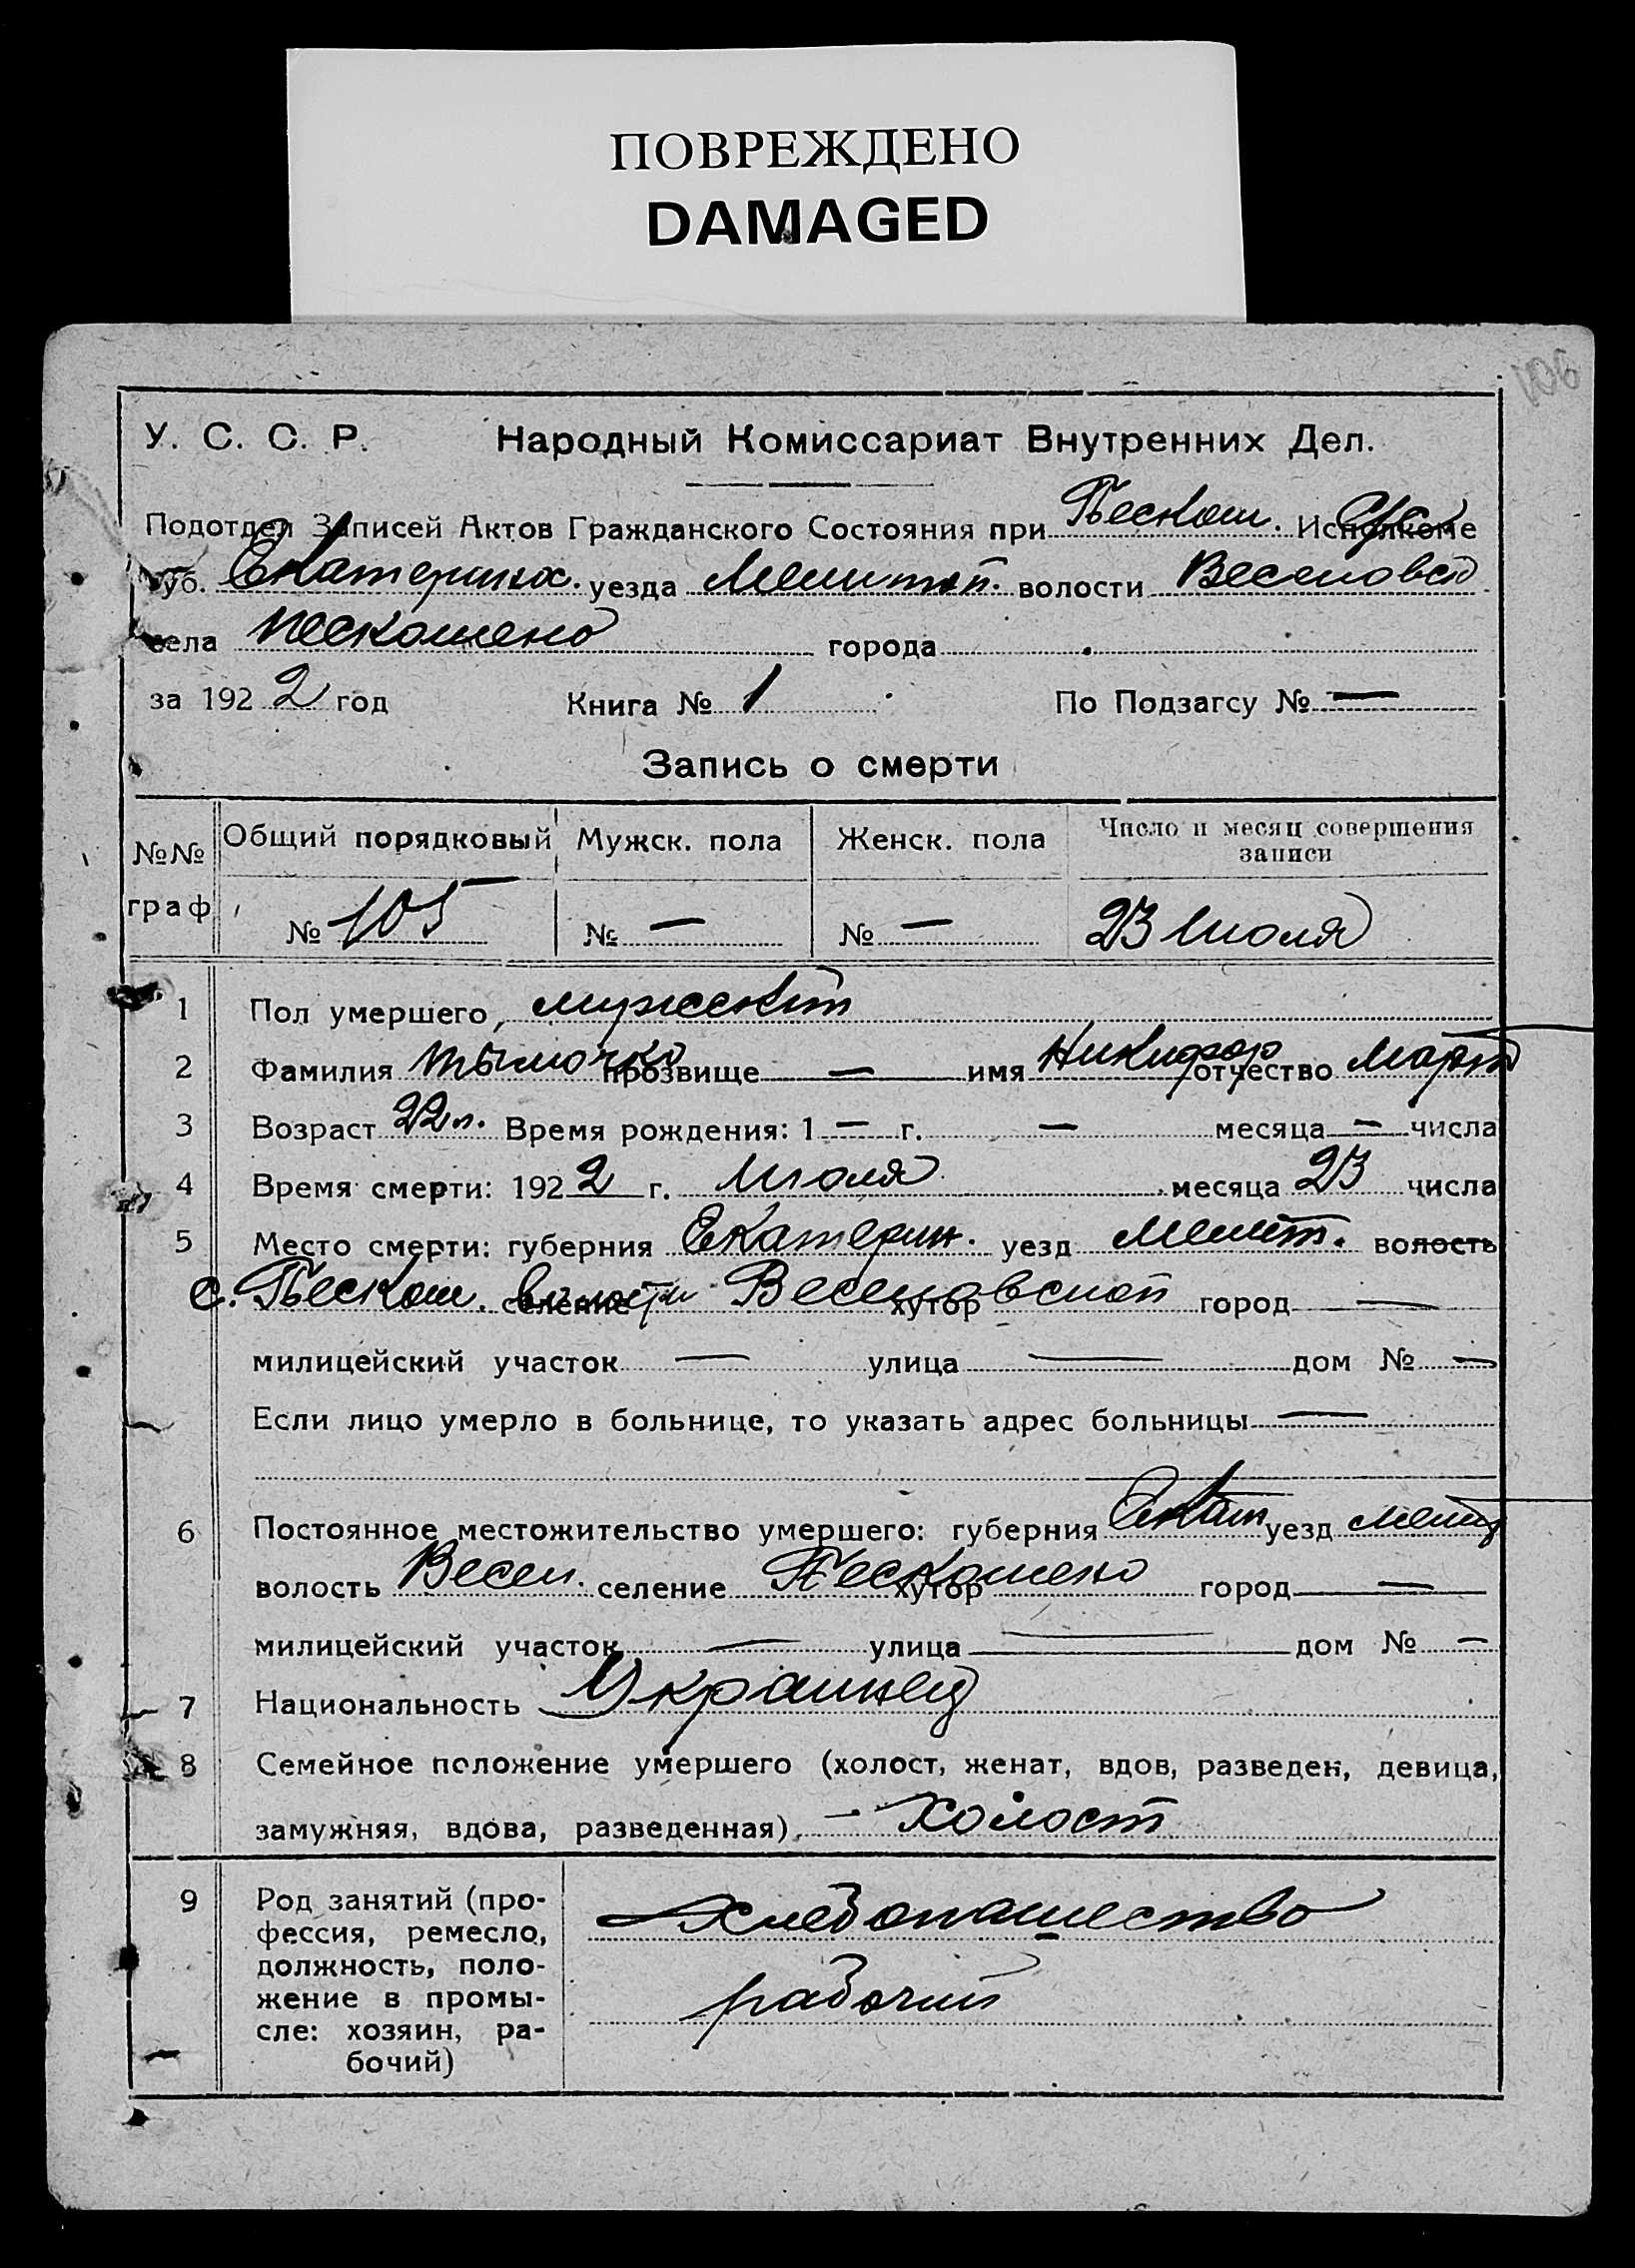 ПОВРЕЖДЕНО
DAMAGED
106
У. С. С. Р. Народный Комиссариат Внутренних Дел.
Подотдел Записей Актов Гражданского Состояния при Пескош. Исполкоме
Губ. Екатеринос. уезда Мелитоп. волости Веселовской
села Пескошено города
за 1922 год Книга № 1 По Подзагсу № —
Запись о смерти
№№ граф Общий порядковый Мужск. пола Женск. пола Число и месяц совершения записи
№ 105 № — № — 23 Июля
1 Пол умершего, мужской
2 Фамилия прозвище — имя Никифор отчество Март
3 Возраст 22 л. Время рождения: 1 — г. — месяца — числа
4 Время смерти: 1922 г. Июля месяца 23 числа
5 Место смерти: губерния Екатерин. уезд Мелит. волость
с. Пескош. волости селение Веселовской хутор город —
милицейский участок — улица — дом № —
Если лицо умерло в больнице, то указать адрес больницы —
6 Постоянное местожительство умершего: губерния Екат уезд Мелит
волость Весел. селение Пескошено хутор город —
милицейский участок — улица — дом № —
7 Национальность Украинец
8 Семейное положение умершего (холост, женат, вдов, разведен, девица,
замужняя, вдова, разведенная) — Холост
9 Род занятий (про-
фессия, ремесло,
должность, поло-
жение в промы-
сле: хозяин, ра-
бочий)
Хлебопашество
рабочий